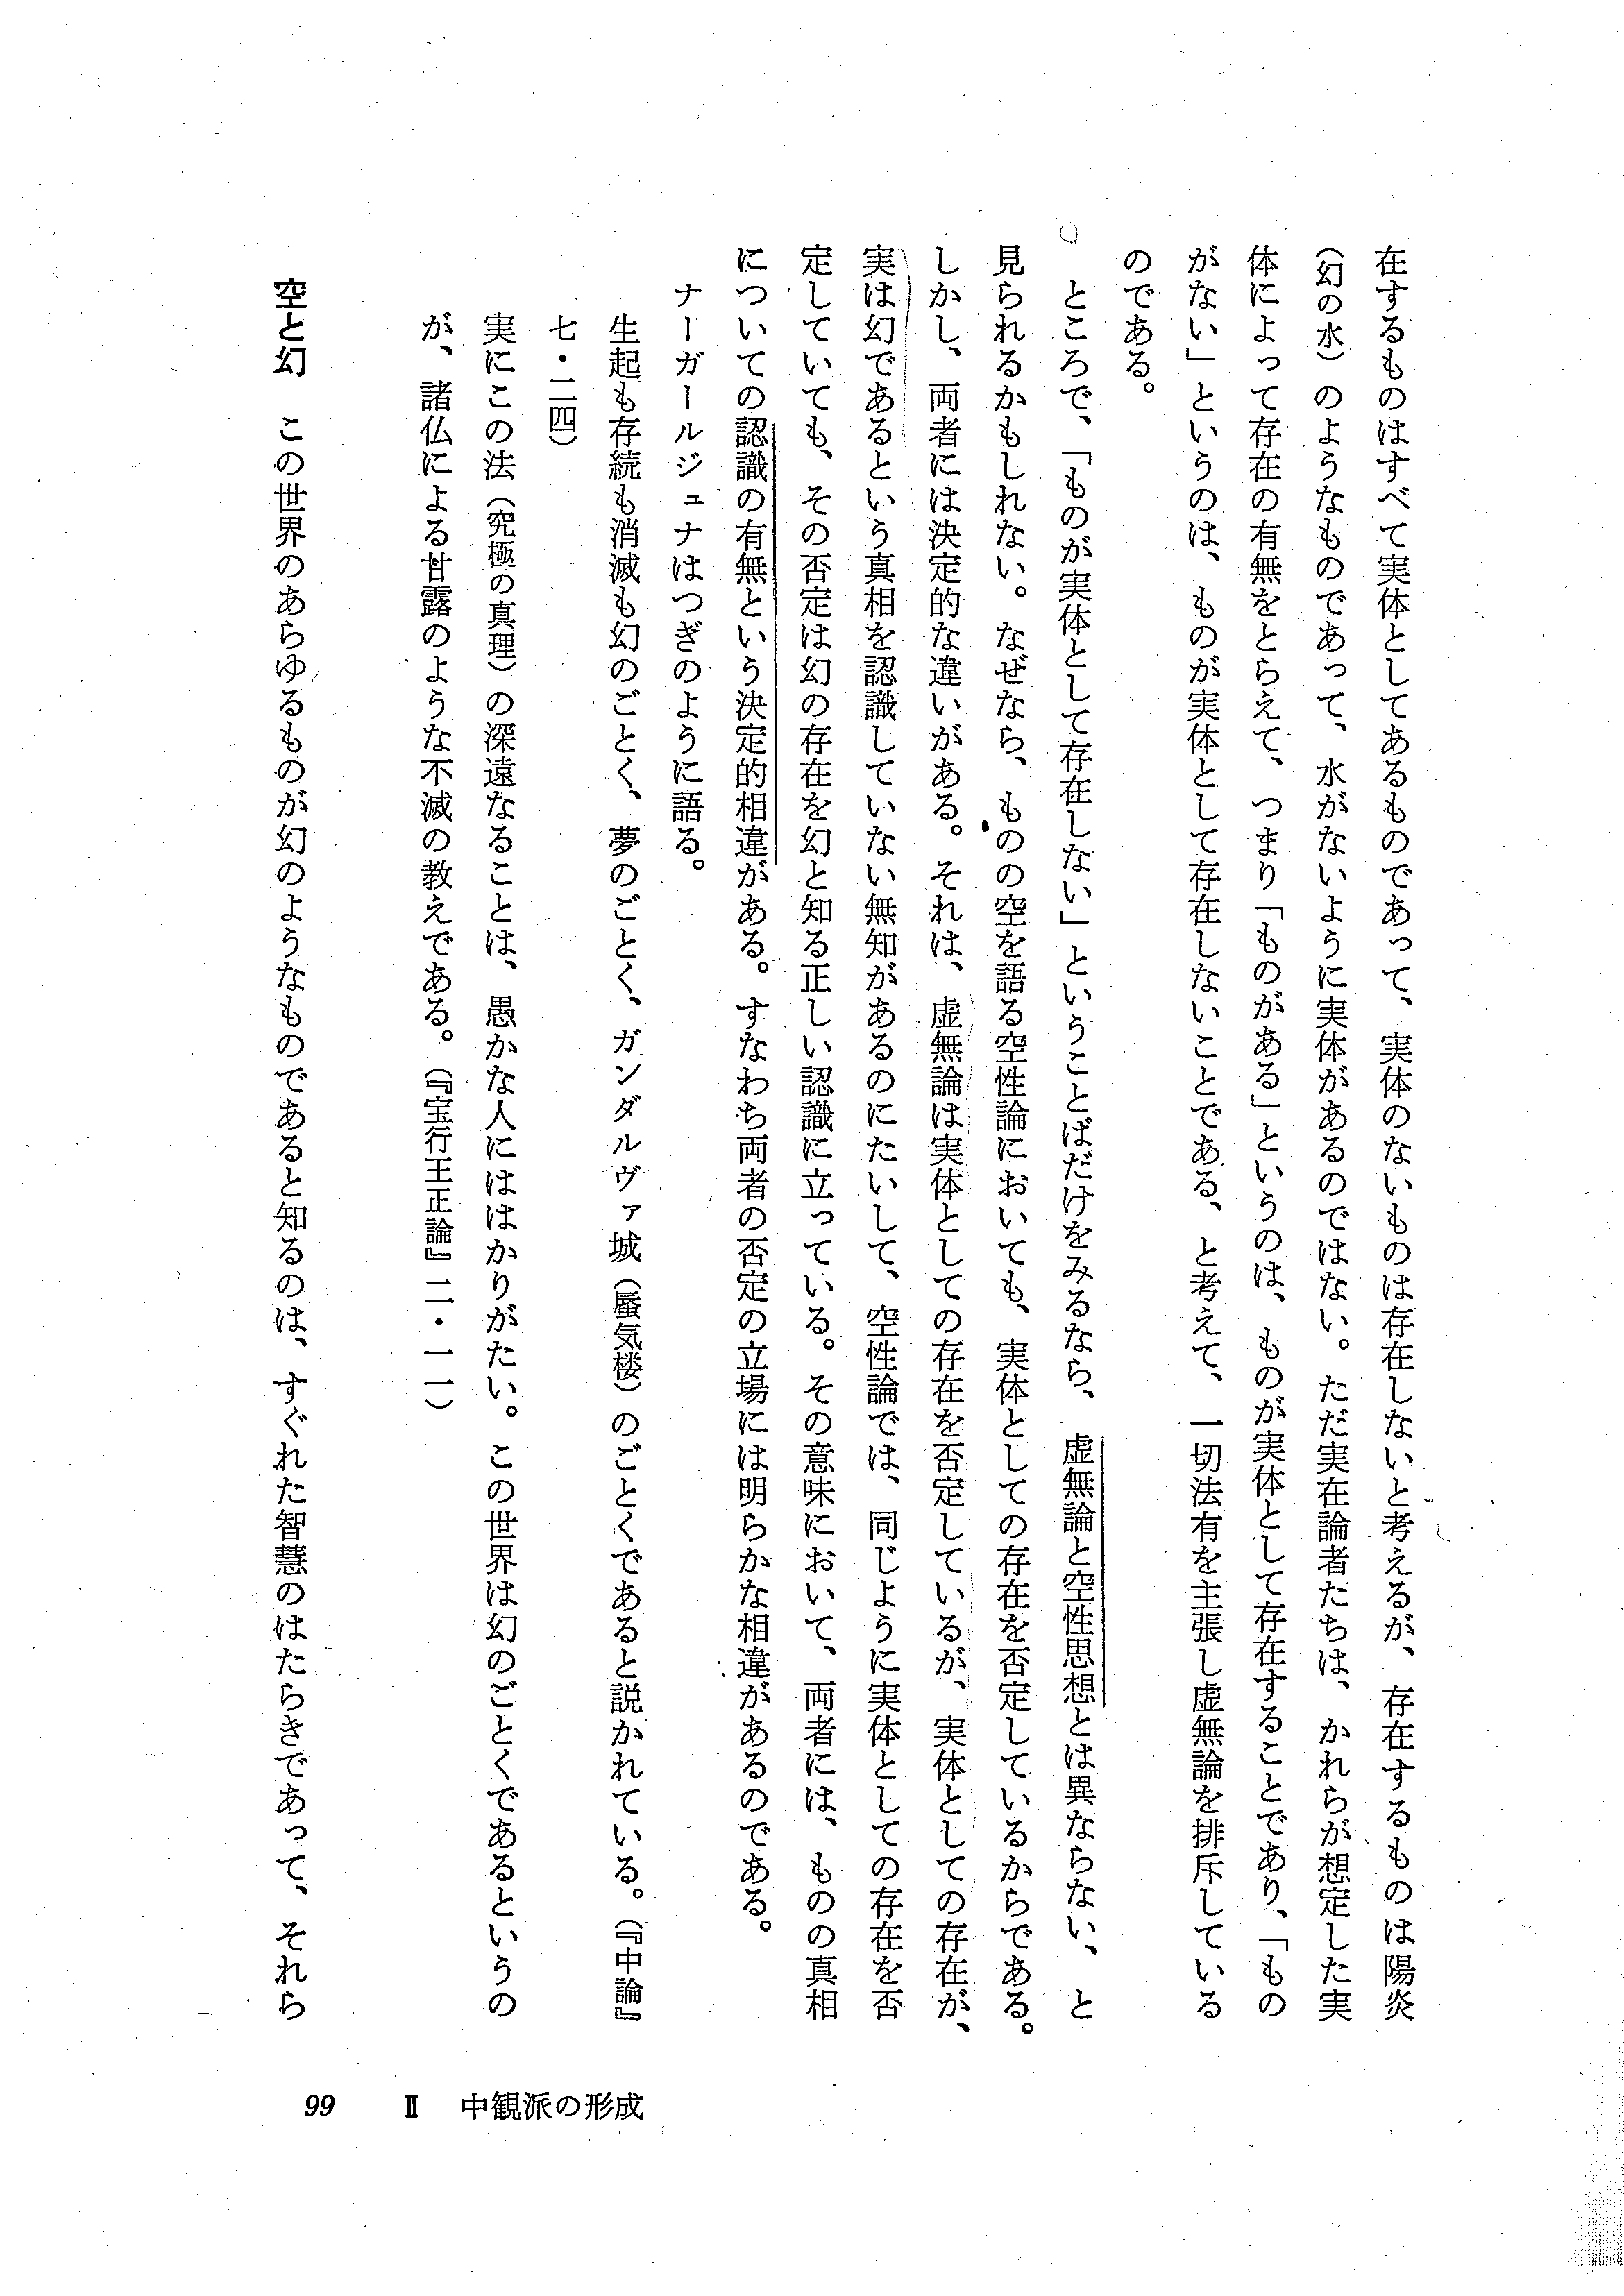 在するものはすべて実体としてあるものであって、実体のないものは存在しないと考えるが、存在するものは陽炎
（幻の水）のようなものであって、水がないように実体があるのではない。ただ実在論者たちは、かれらが想定した実
体によって存在の有無をとらえて、つまり「ものがある」というのは、ものが実体として存在することであり、「もの
がない」というのは、ものが実体として存在しないことである、と考えて、一切法有を主張し虚無論を排斥している
のである。
ところで、「ものが実体として存在しない」ということばだけをみるなら、虚無論と空性思想とは異ならない、と
見られるかもしれない。なぜなら、ものの空を語る空性論においても、実体としての存在を否定しているからである。
しかし、両者には決定的な違いがある。それは、虚無論は実体としての存在を否定しているが、実体としての存在が、
実は幻であるという真相を認識していない無知があるのにたいして、空性論では、同じように実体としての存在を否
定していても、その否定は幻の存在を幻と知る正しい認識に立っている。その意味において、両者には、ものの真相
についての認識の有無という決定的相違がある。すなわち両者の否定の立場には明らかな相違があるのである。
ナーガールジュナはつぎのように語る。
生起も存続も消滅も幻のごとく、夢のごとく、ガンダルヴァ城（蜃気楼）のごとくであると説かれている。（『中論』
七・二四）
実にこの法（究極の真理）の深遠なることは、愚かな人にははかりがたい。この世界は幻のごとくであるというの
が、諸仏による甘露のような不滅の教えである。（『宝行王正論』二・一一）
空と幻　この世界のあらゆるものが幻のようなものであると知るのは、すぐれた智慧のはたらきであって、それら
99 Ⅱ 中観派の形成